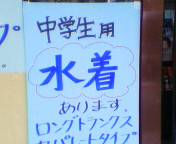 中学生用
水着
あります。
ロングトランクス
セパレートタイプ
プ